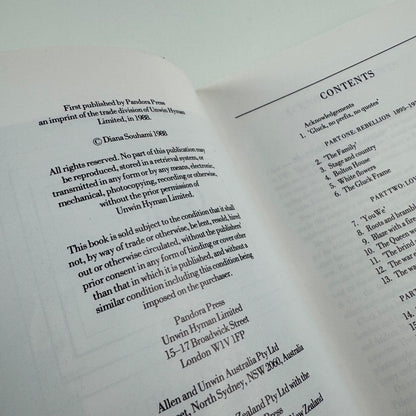 First published by Pandora Press
an imprint of the trade division of Unwin Hyman
Limited, in 1988.
© Diana Souhami 1988
All rights reserved. No part of this publication may
be reproduced, stored in a retrieval system, or
transmitted in any form or by any means, electronic,
mechanical, photocopying, recording or otherwise,
without the prior permission of
Unwin Hyman Limited.
This book is sold subject to the condition that it shall
not, by way of trade or otherwise, be lent, resold, hired
out or otherwise circulated, without the publisher's
prior consent in any form of binding or cover other
than that in which it is published, and without a
similar condition including this condition being
imposed on the purchaser.
Pandora Press
Unwin Hyman Limited
15–17 Broadwick Street
London W1V 1FP
Allen and Unwin Australia Pty Ltd
North Sydney, NSW 2060, Australia
Pty Ltd with the
Zealand
CONTENTS
Acknowledgements
1. 'Gluck, no prefix, no quotes'
PART ONE: REBELLION 1895–
2. 'The Family'
3. Stage and country
4. Bolton House
5. White flowers
6. The Gluck Frame
PART TWO: LOV
7. 'YouWe'
8. Roots and
9. Blaze with a
10. The Queen
11. The
12. The war
13. The
PART
14.
15.